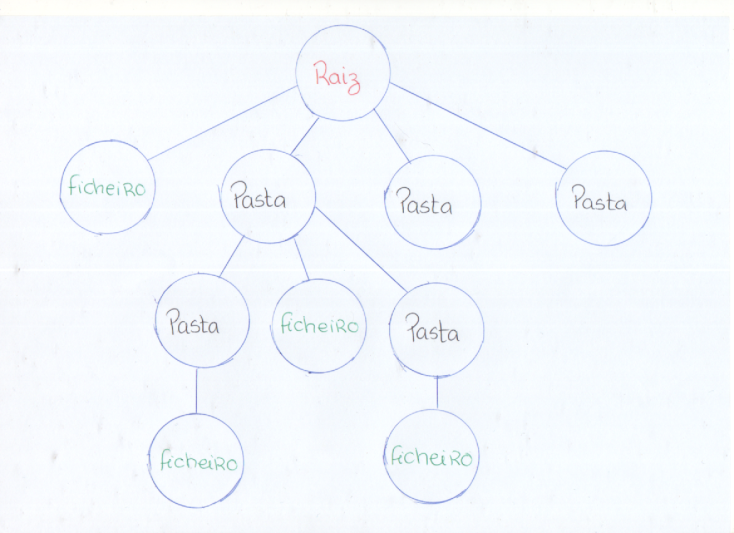 Raiz
ficheiro
Pasta
Pasta
Pasta
Pasta
ficheiro
Pasta
ficheiro
ficheiro